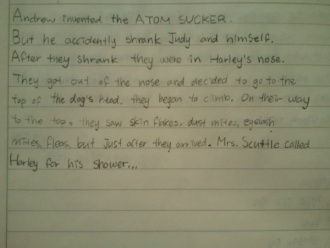 Andrew invented the ATOM SUCKER.
But he accidently shrank Judy and himself.
After they shrank they were in Harley's nose.
They got out of the nose and decided to go to the
top of the dog's head. they began to climb. On their way
to the top, they saw skin flakes, dust mites, eyelash
mites, fleas, but Just after they arrived, Mrs. Scuttle called
Harley for his shower...